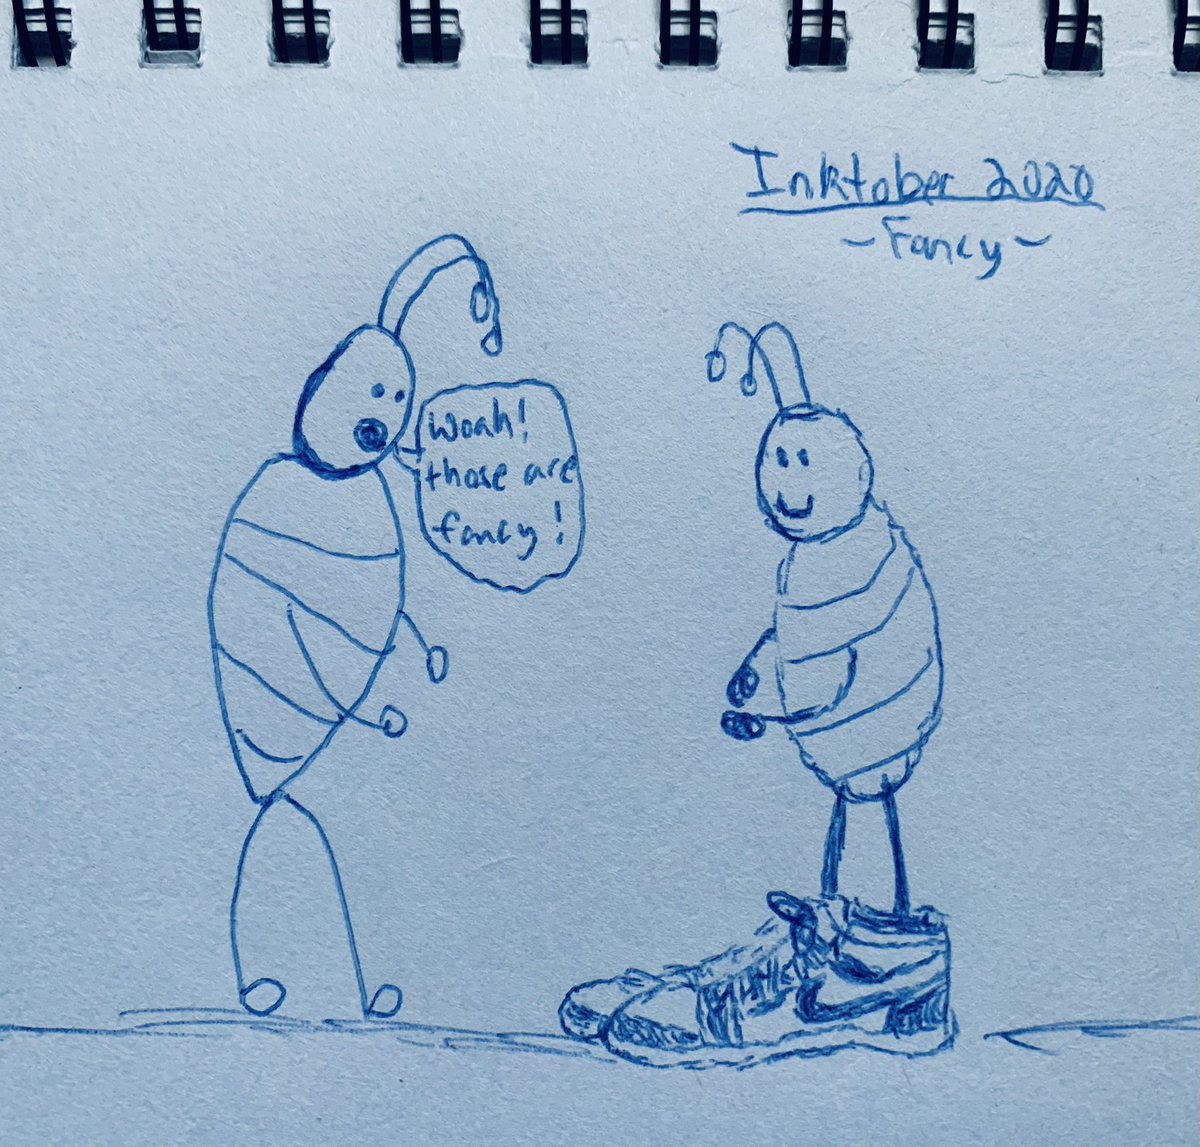 Inktober 2020
~Fancy~
Woah!
those are
fancy!